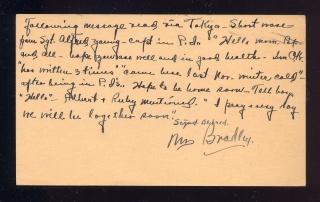 Following message read via Tokyo - Short wave
from Sgt. Alfred Young - capt in P.I. "Hello mom, Pop
and all - hope you are well and in good health - Im O.K.
"has written 3 times" came here last Nov. winter, cold"
after being in P.I. Hope to be home soon - Tell boy
"Hello" Albert + Ruby mentioned. "I pray every day
we will be together soon." Signed Alfred.
Mrs Bradley.